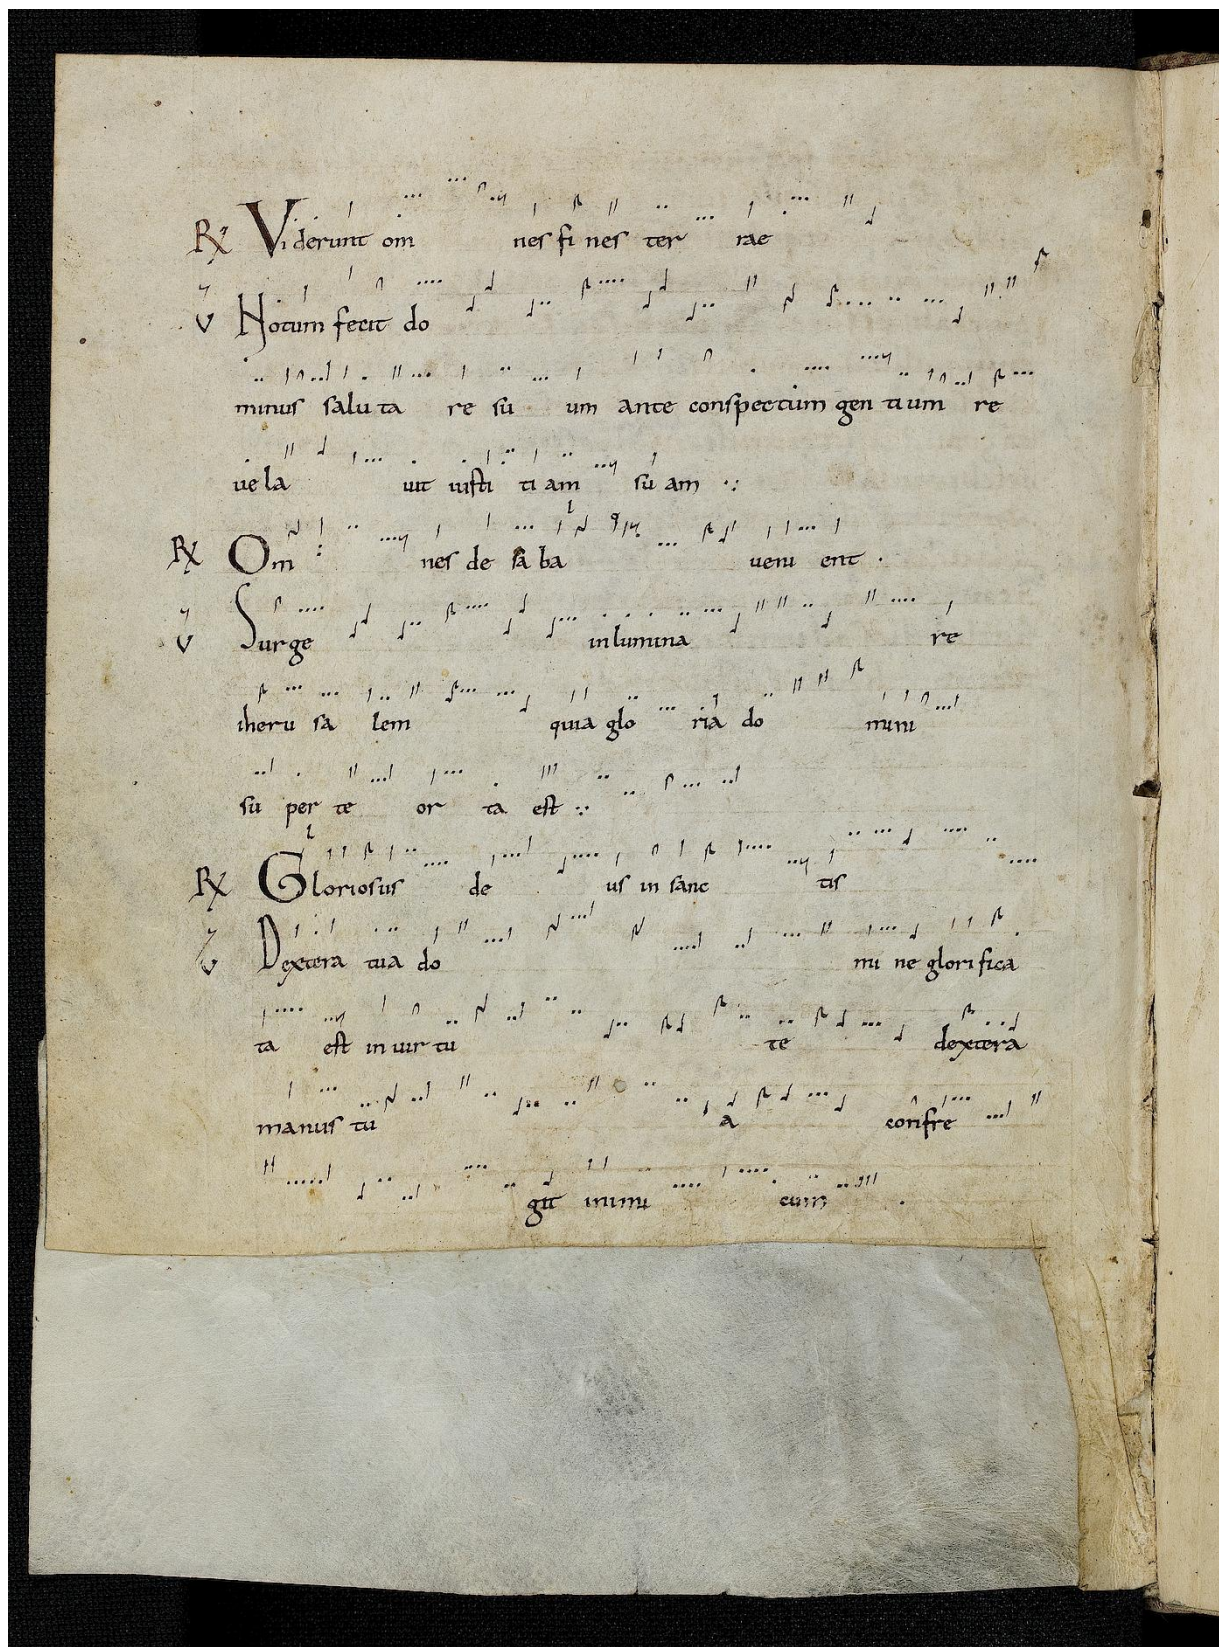 R Viderunt om nes fi nes ter rae
V Notum fecit do
minus salu ta re su um ante conspectum gen tium re
uela uit iusti ti am su am
R Om nes de sa ba ueni ent .
V Surge inlumina re
iheru sa lem quia glo ria do mini
su per te or ta est
R Gloriosus de us in sanc tis
V Dextera tua do mi ne glorifica
ta est in uir tu te dextera
manus tu a confre
git inimi cum .